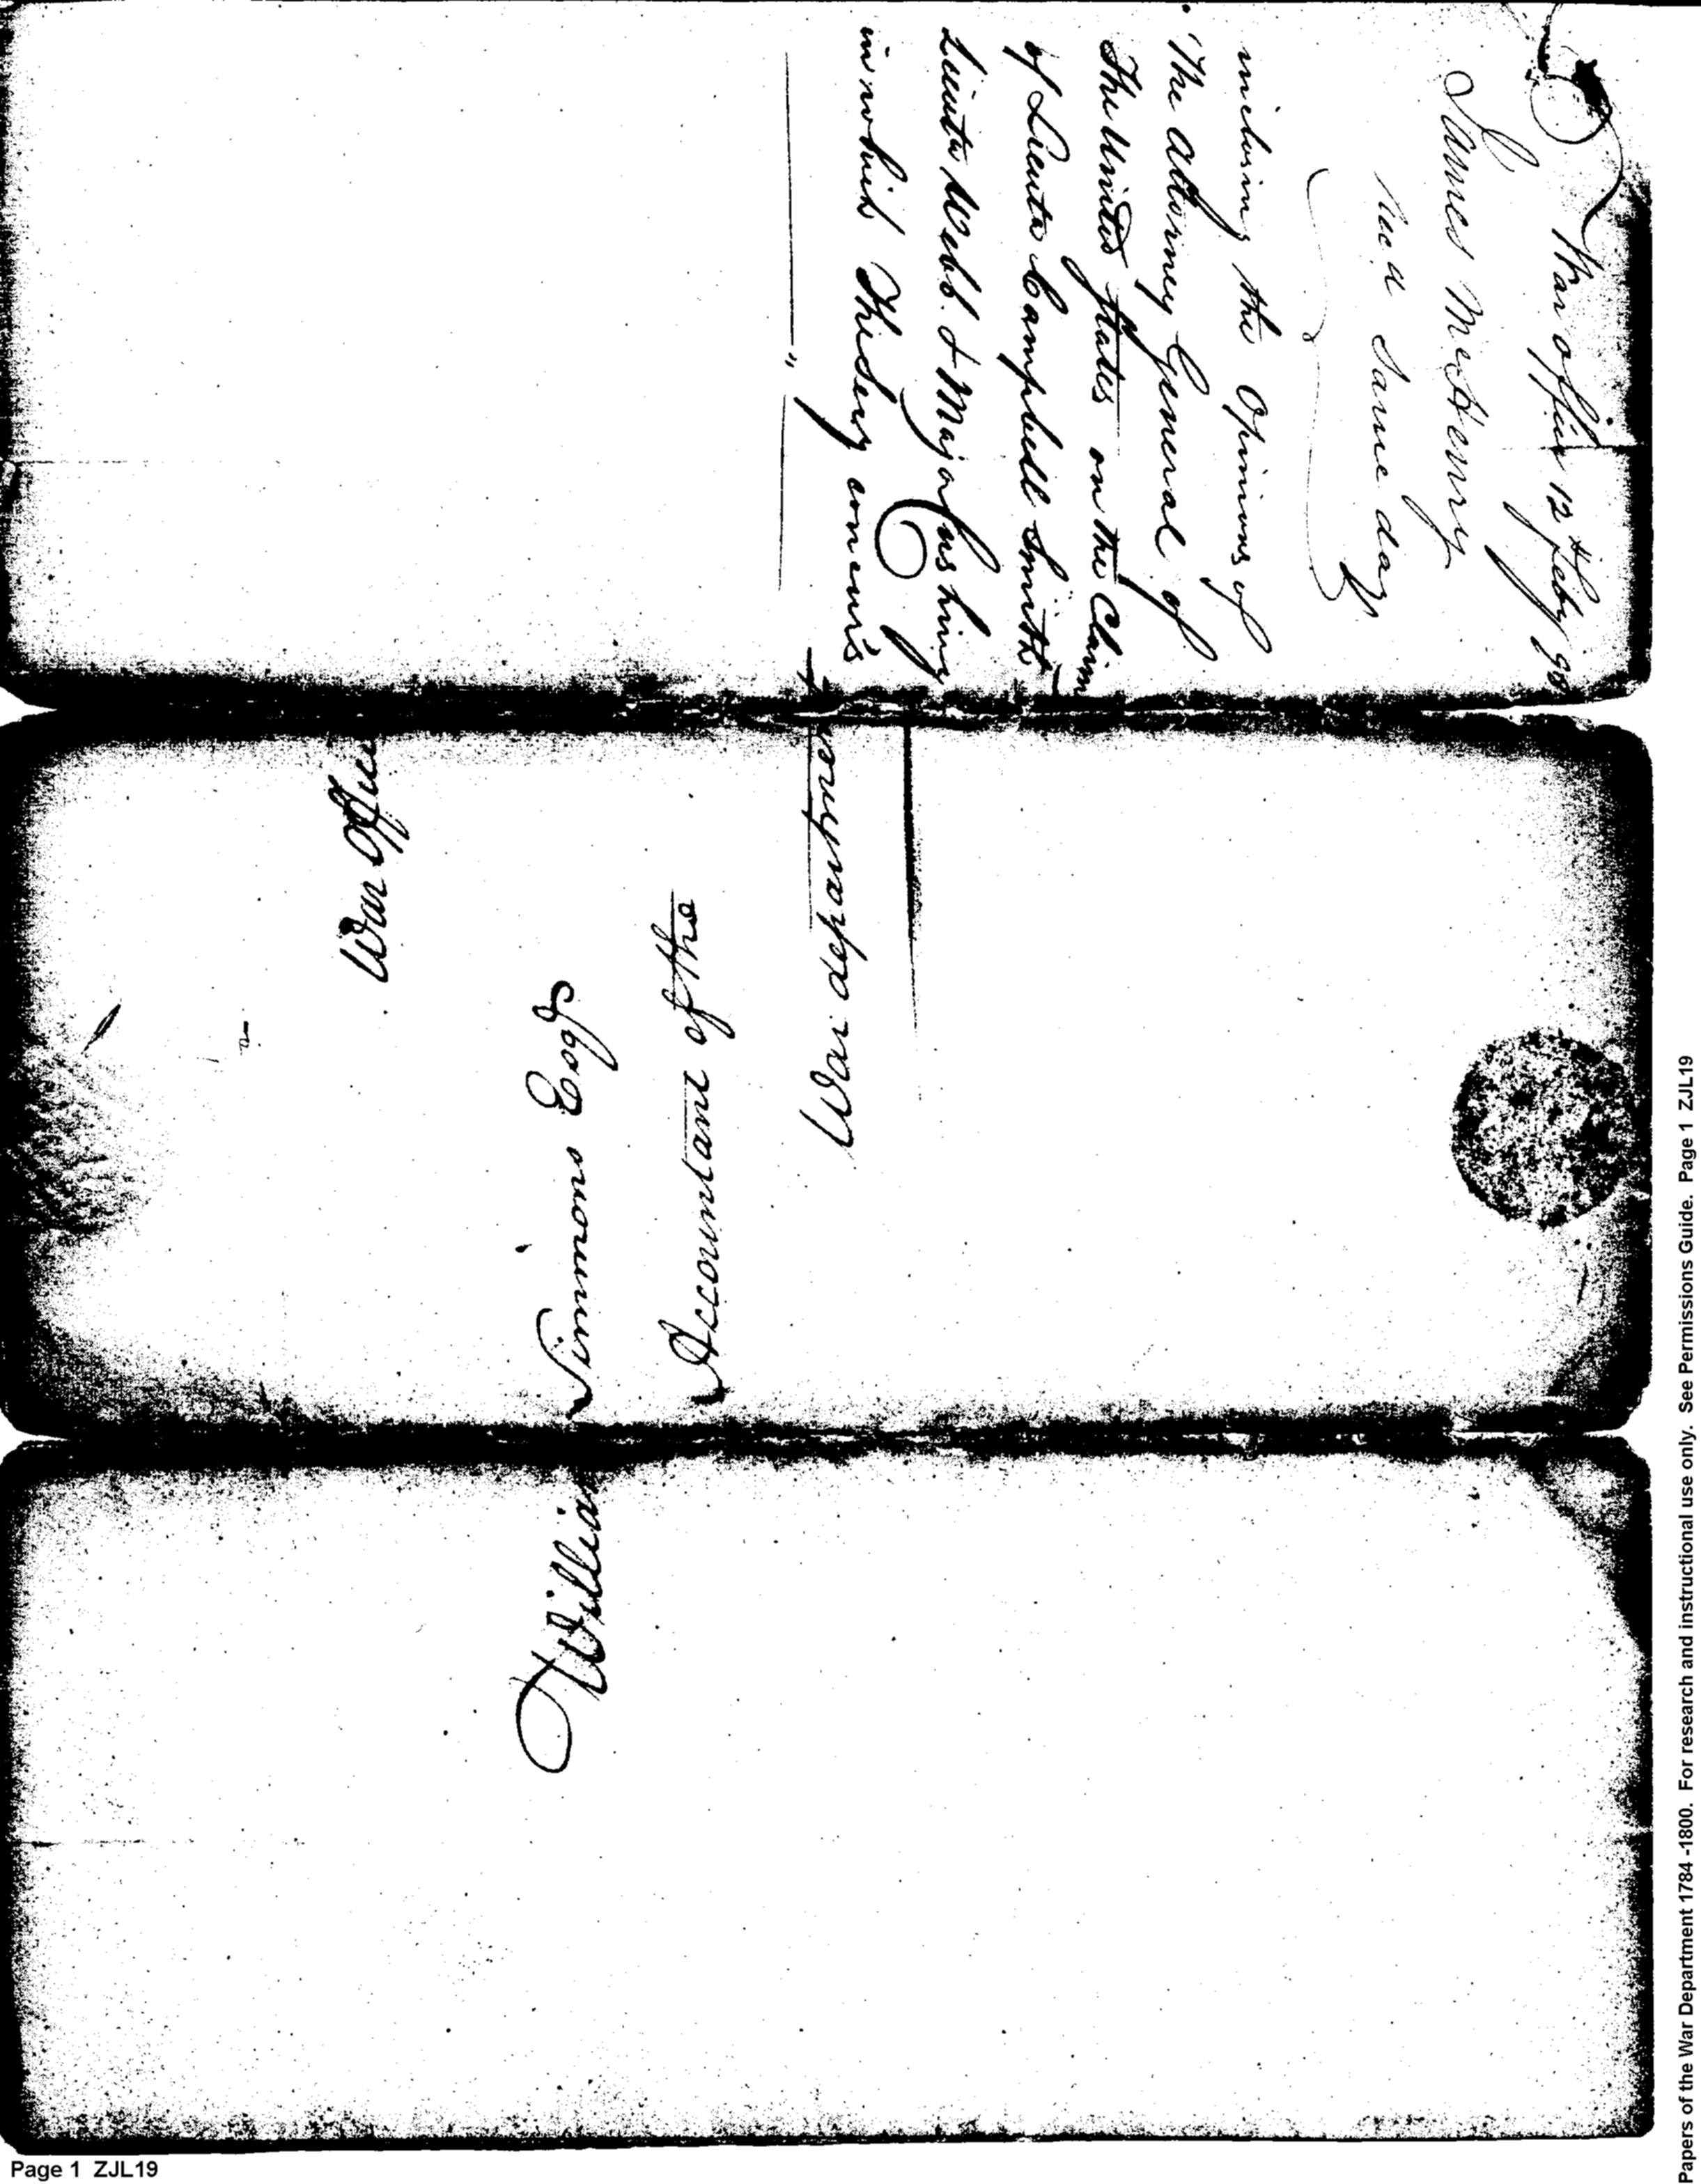 War office 12th Feby 98
James McHenry
Rec'd Same day
inclosing the Opinions of
The Attorney General of
The United States on the Claim
of Lieuts Campbell Smith
Lieuts Webb & Major Cushing
in which The Secy concurs
War Office
William Simmons Esqr
Accountant of the
War department
Page 1 ZJL19
Papers of the War Department 1784 -1800. For research and instructional use only. See Permissions Guide. Page 1 ZJL19